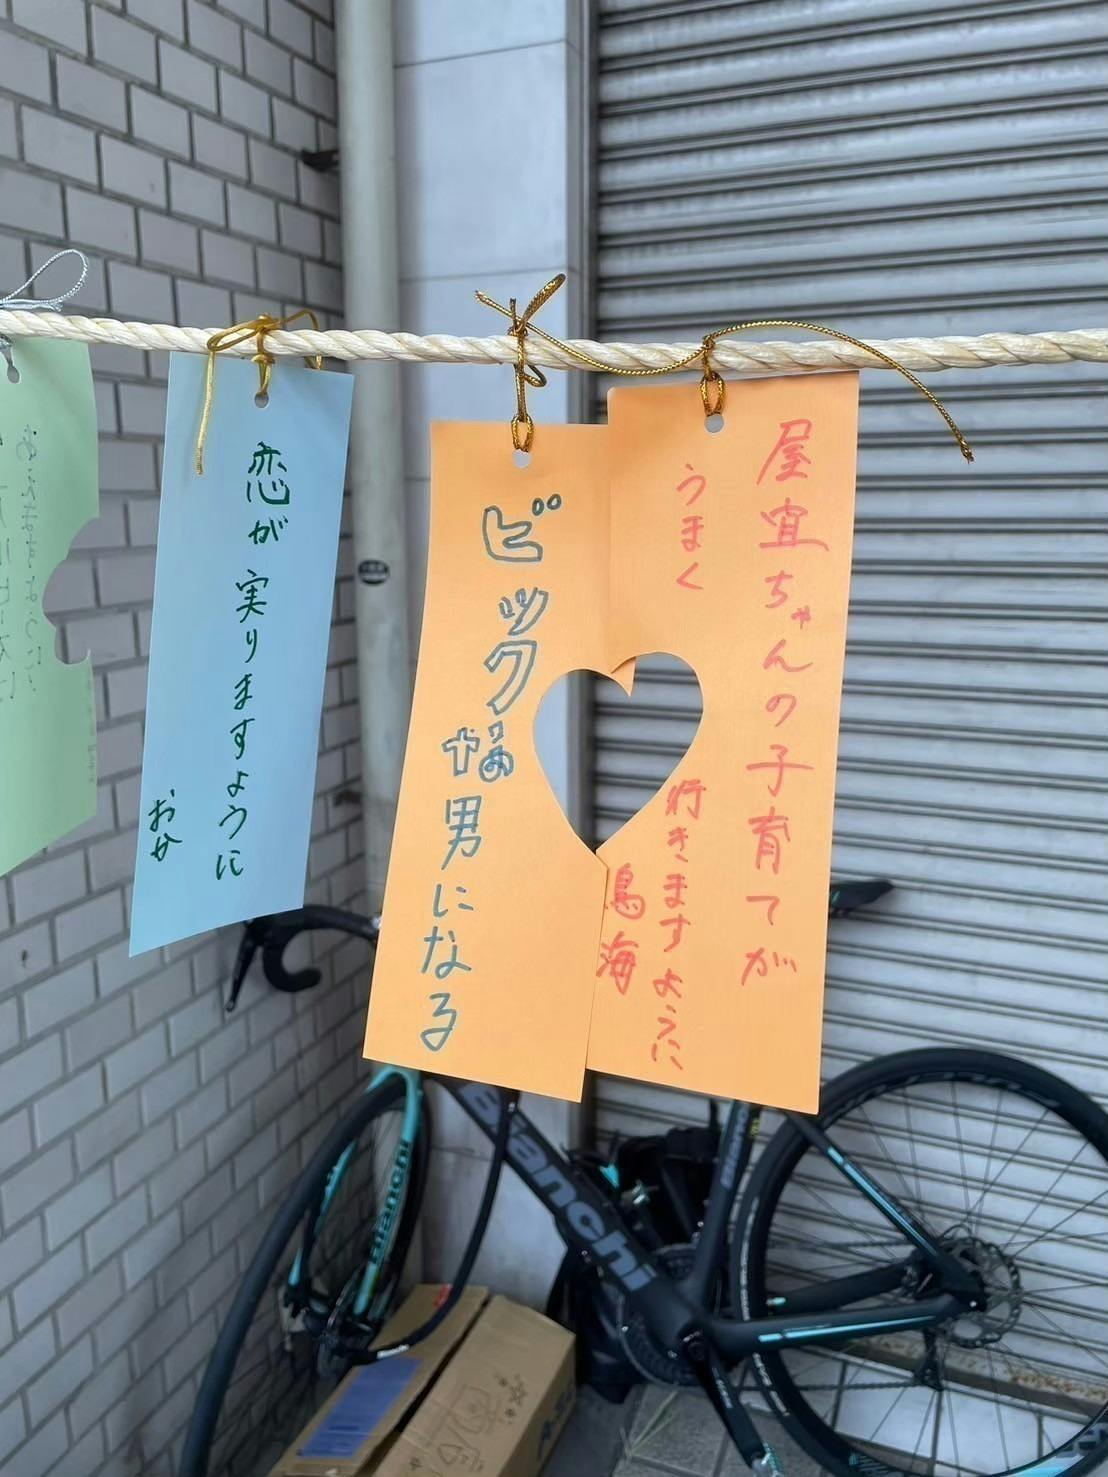 屋宜ちゃんの子育てが
うまく
行きますように
鳥海
ビックな
男になる
恋が実りますように
おか
Bianchi
Bianchi